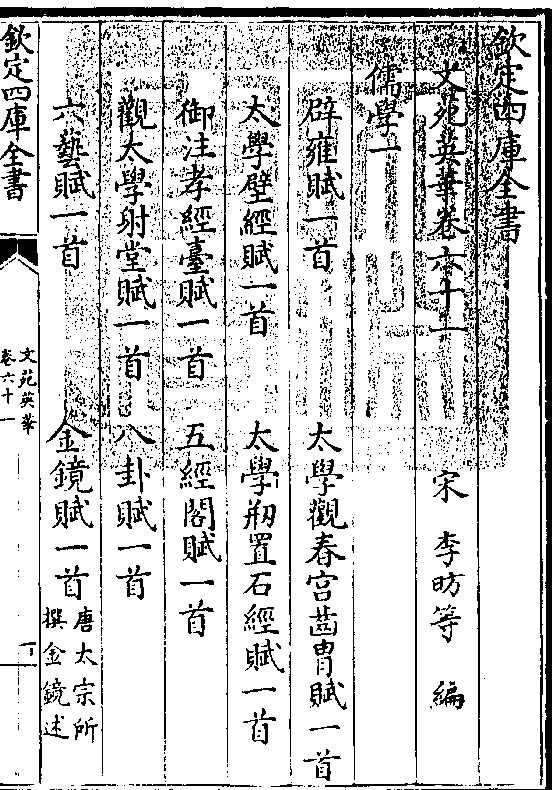 欽定四庫全書
文苑英華卷六十一　宋　李昉等　編
儒學一
辟雍賦一首　太學觀春宮齒胄賦一首
太學壁經賦一首　太學刱置石經賦一首
御注孝經臺賦一首　五經閣賦一首
觀太學射堂賦一首　八卦賦一首
六藝賦一首　金鏡賦一首唐太宗所撰金鏡述
欽定四庫全書
文苑英華
卷六十一
一